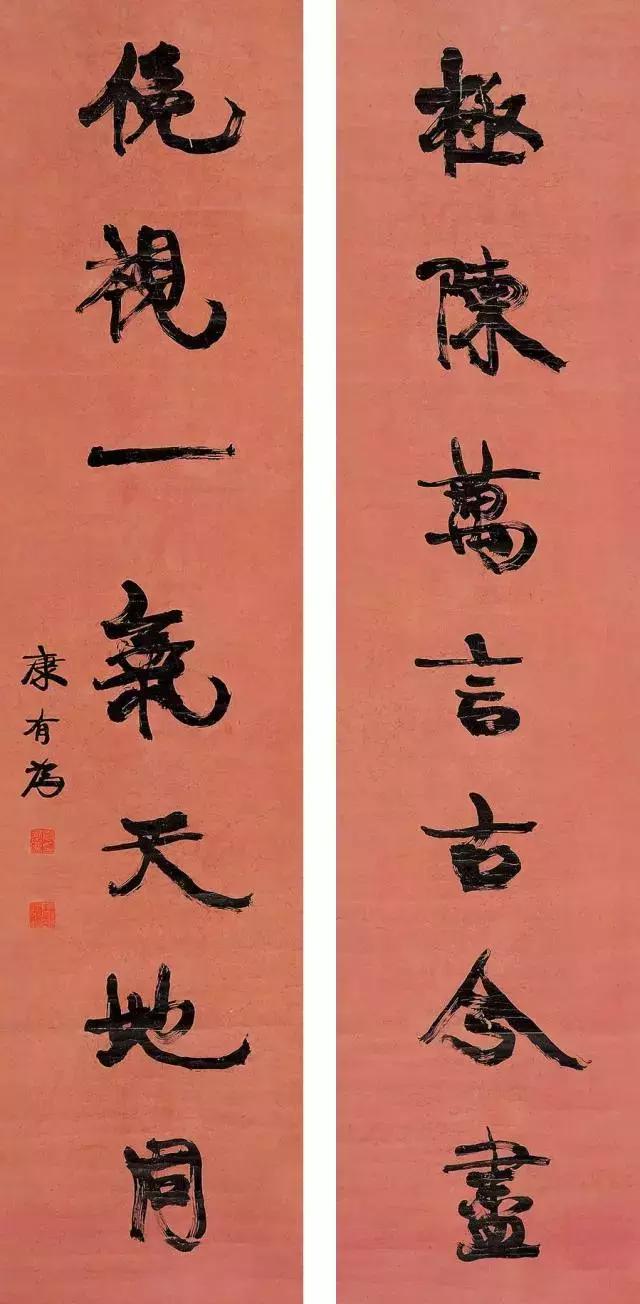 極陳萬言古今盡
俛視一氣天地同
康有為